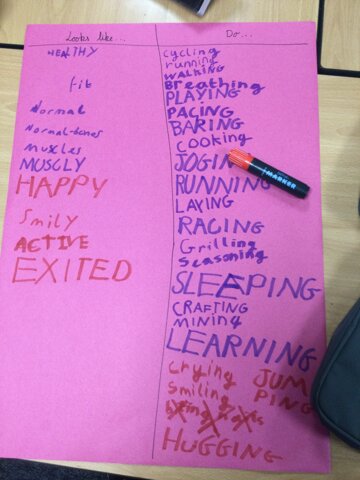 Looks like...
HEALTHY
Fit
Normal
Normal-bones
Muxles
MUSCLY
HAPPY
Smily
ACTIVE
EXITED
Do...
cycling
running
WALKING
Breathing
PLAYING
PACING
BARING
Cooking
JOGIN
RUNNING
LAYING
RACING
Grilling
Seasoning
SLEEPING
CRAFTING
Mining
LEARNING
Crying
Smiling
JUMPING
HUGGING
MARKER